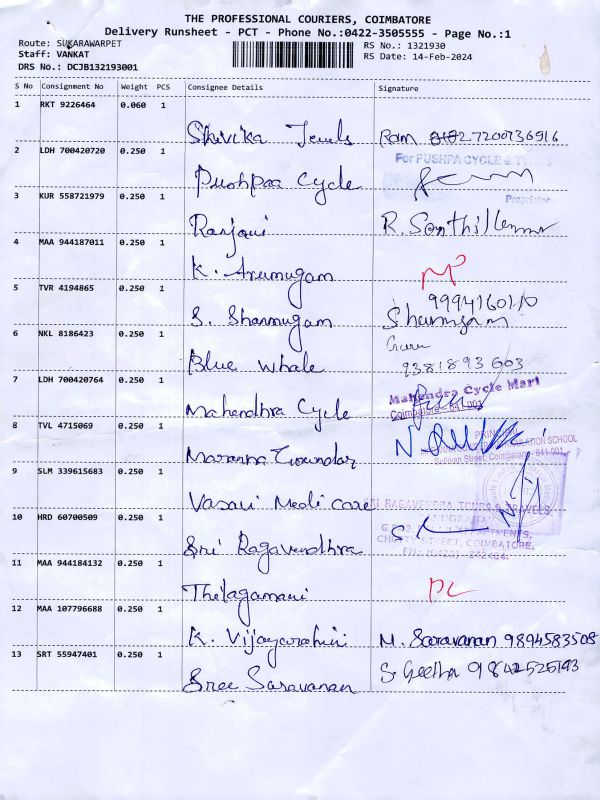 THE PROFESSIONAL COURIERS, COIMBATORE
Delivery Runsheet - PCT - Phone No.:0422-3505555 - Page No.:1
Route: SUKARAWARPET
Staff: VANKAT
DRS No.: DCJB132193001
RS No.: 1321930
RS Date: 14-Feb-2024
S No Consignment No Weight PCS Consignee Details Signature
1 RKT 9226464 0.060 1
Shivika Jewels Ram 7200736916
2 LDH 700420720 0.250 1
For PUSHPA CYCLE &
Pushpaa Cycle
Proprietor
3 KUR 558721979 0.250 1
Ranjani R. Senthil
4 MAA 944187011 0.250 1
K. Arumugam
5 TVR 4194865 0.250 1
S. Shanmugam
6 NKL 8186423 0.250 1
Blue Whale 9381893603
7 LDH 700420764 0.250 1
Mahendra Cycle Mart
Coimbatore - 641 001
Mahendhra Cycle
8 TVL 4715069 0.250 1
PRINCIPAL
SCHOOL
Sullivan Street, Coimbatore - 641 001
Maranna Gounder
9 SLM 339615683 0.250 1
Vasavi Medi care
SRI RAGAVENDRA TOURS & TRAVELS
10 HRD 60700509 0.250 1
STREET, COIMBATORE.
Sri Ragavendhra
11 MAA 944184132 0.250 1
Thilagamani
12 MAA 107796688 0.250 1
K. Vijayarohini M. Saravanan 9894583508
13 SRT 55947401 0.250 1
S. Geetha 9842525193
Sree Saravanan